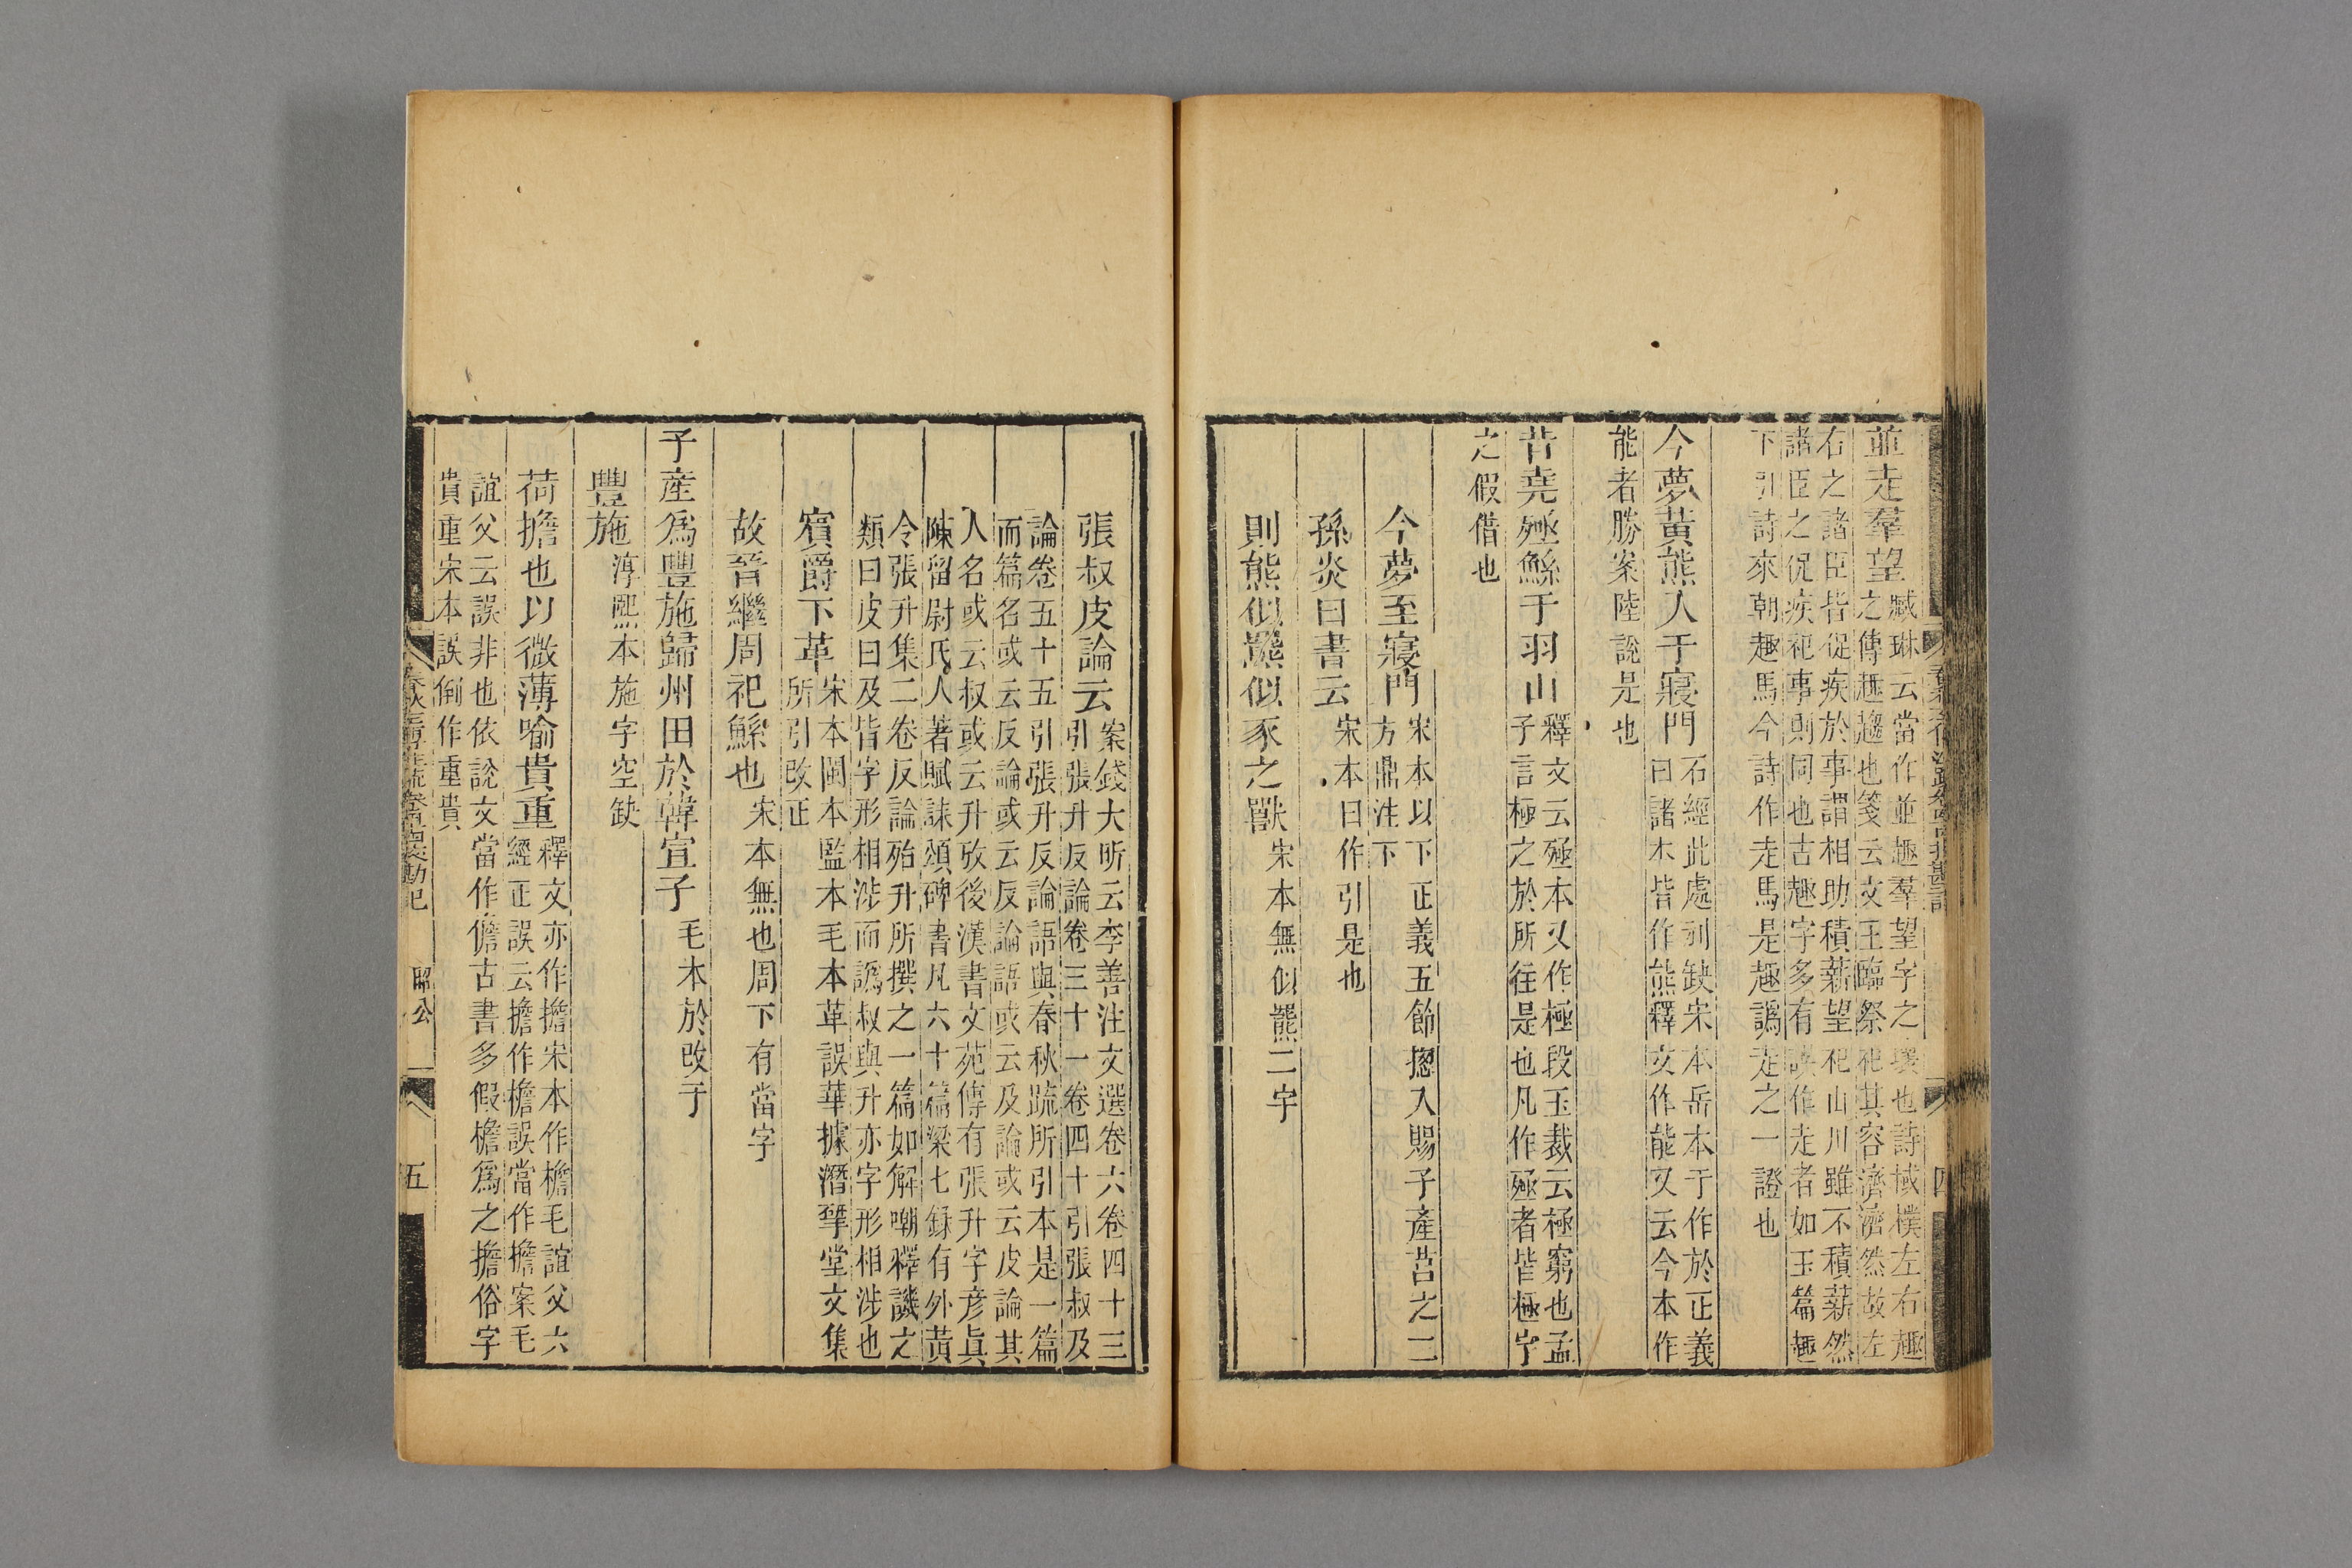 並走羣望臧琳云當作並趣羣望字之壞也詩棫樸左右趣
之傳趣趨也箋云文王臨祭祀其容濟濟然故左
右之諸臣皆促疾於事謂相助積薪望祀山川雖不積薪然
諸臣之促疾祀事則同也古趣字多有誤作走者如玉篇趣
下引詩來朝趣馬今詩作走馬是趣譌走之一證也
今夢黃熊入于寢門石經此處刓缺宋本岳本于作於正義
曰諸本皆作熊釋文作能又云今本作
能者勝案陸說是也
昔堯殛鯀于羽山釋文云殛本又作極段玉裁云極窮也孟
子言極之於所往是也凡作殛者皆極字
之假借也
今夢至寢門宋本以下正義五節揔入賜子產莒之二
方鼎注下
孫炎曰書云宋本曰作引是也
則熊似羆似豕之獸宋本無似羆二字
張叔皮論云案錢大昕云李善注文選卷六卷四十三
引張升反論卷三十一卷四十引張叔及
論卷五十五引張升反論語與春秋疏所引本是一篇
而篇名或云反論或云反論語或云及論或云皮論其
人名或云叔或云升攷後漢書文苑傳有張升字彥眞
陳留尉氏人著賦誄頌碑書凡六十篇梁七錄有外黃
令張升集二卷反論殆升所撰之一篇如解嘲釋譏之
類曰皮曰及皆字形相涉而譌叔與升亦字形相涉也
賓爵下革宋本閩本監本毛本革誤華據潛揅堂文集
所引改正
故晉繼周祀鯀也宋本無也周下有當字
子產爲豐施歸州田於韓宣子毛本於改于
豐施淳熙本施字空缺
荷擔也以微薄喻貴重釋文亦作擔宋本作檐毛誼父六
經正誤云擔作檐誤當作擔案毛
誼父云誤非也依說文當作儋古書多假檐爲之擔俗字
貴重宋本誤倒作重貴
昭公
五